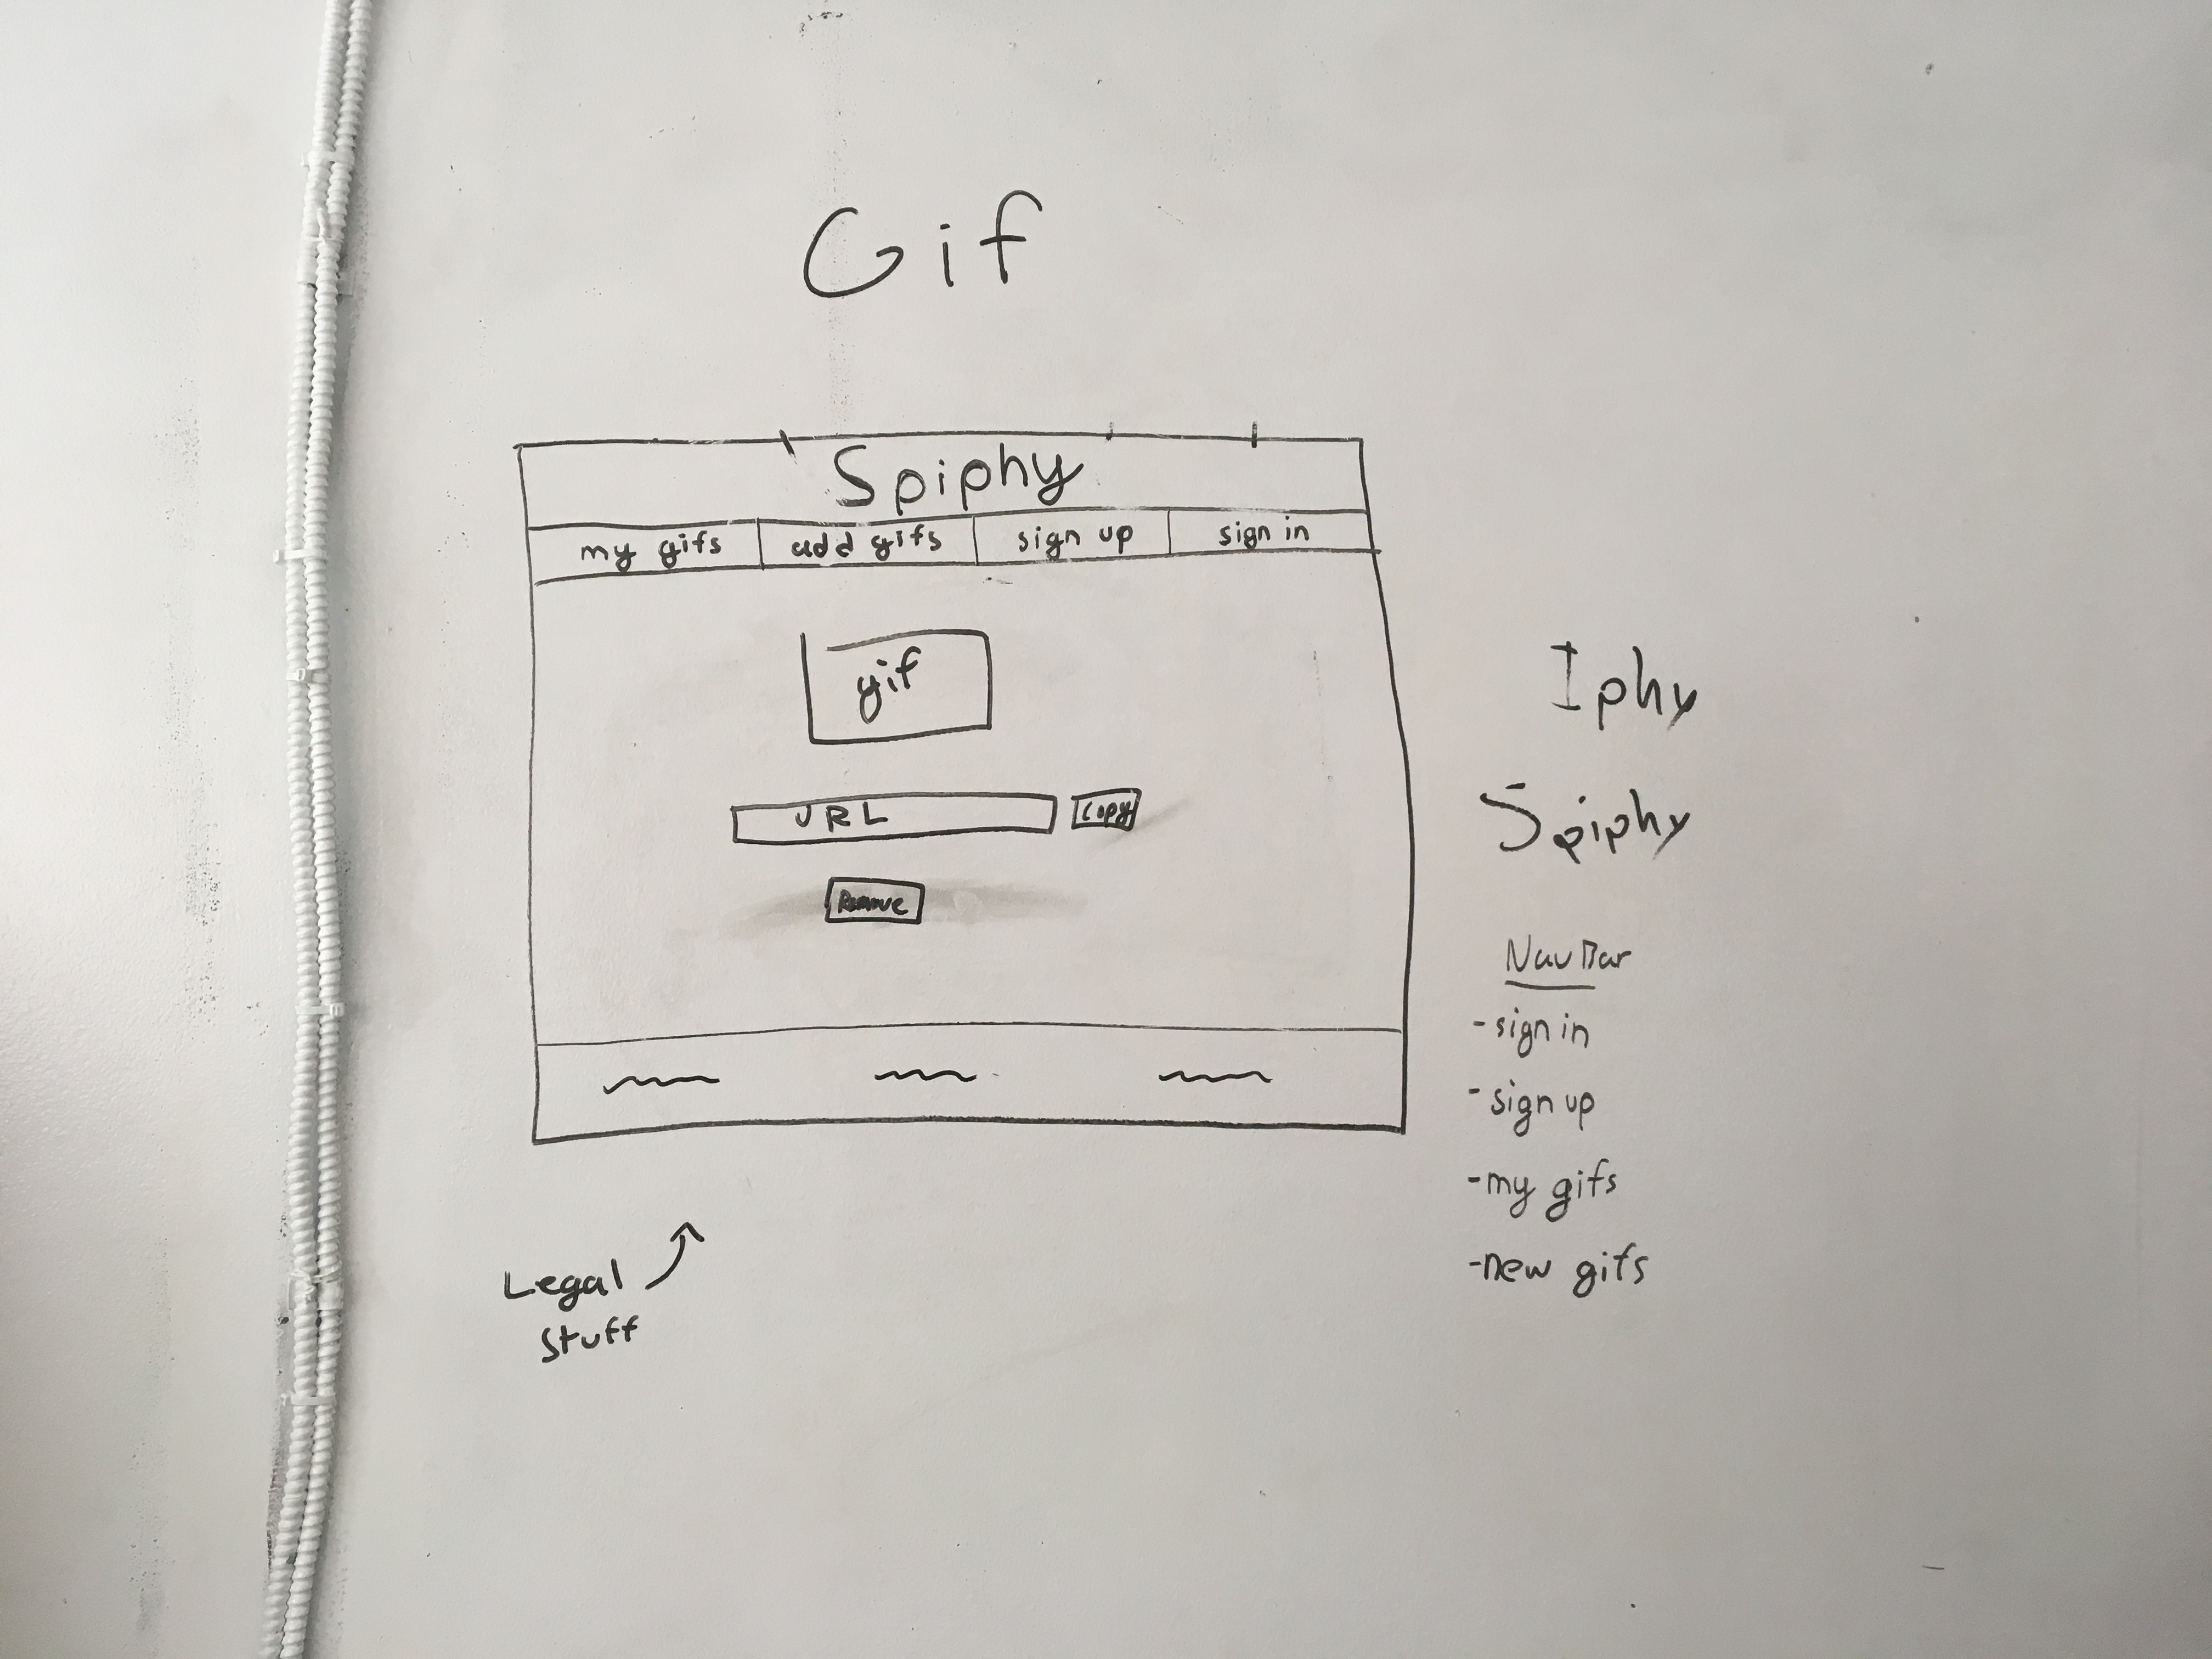 Gif
Spiphy
my gifs add gifs sign up sign in
gif
URL Copy
Remove
Legal
stuff
Iphy
Spiphy
NavBar
-sign in
-sign up
-my gifs
-new gifs